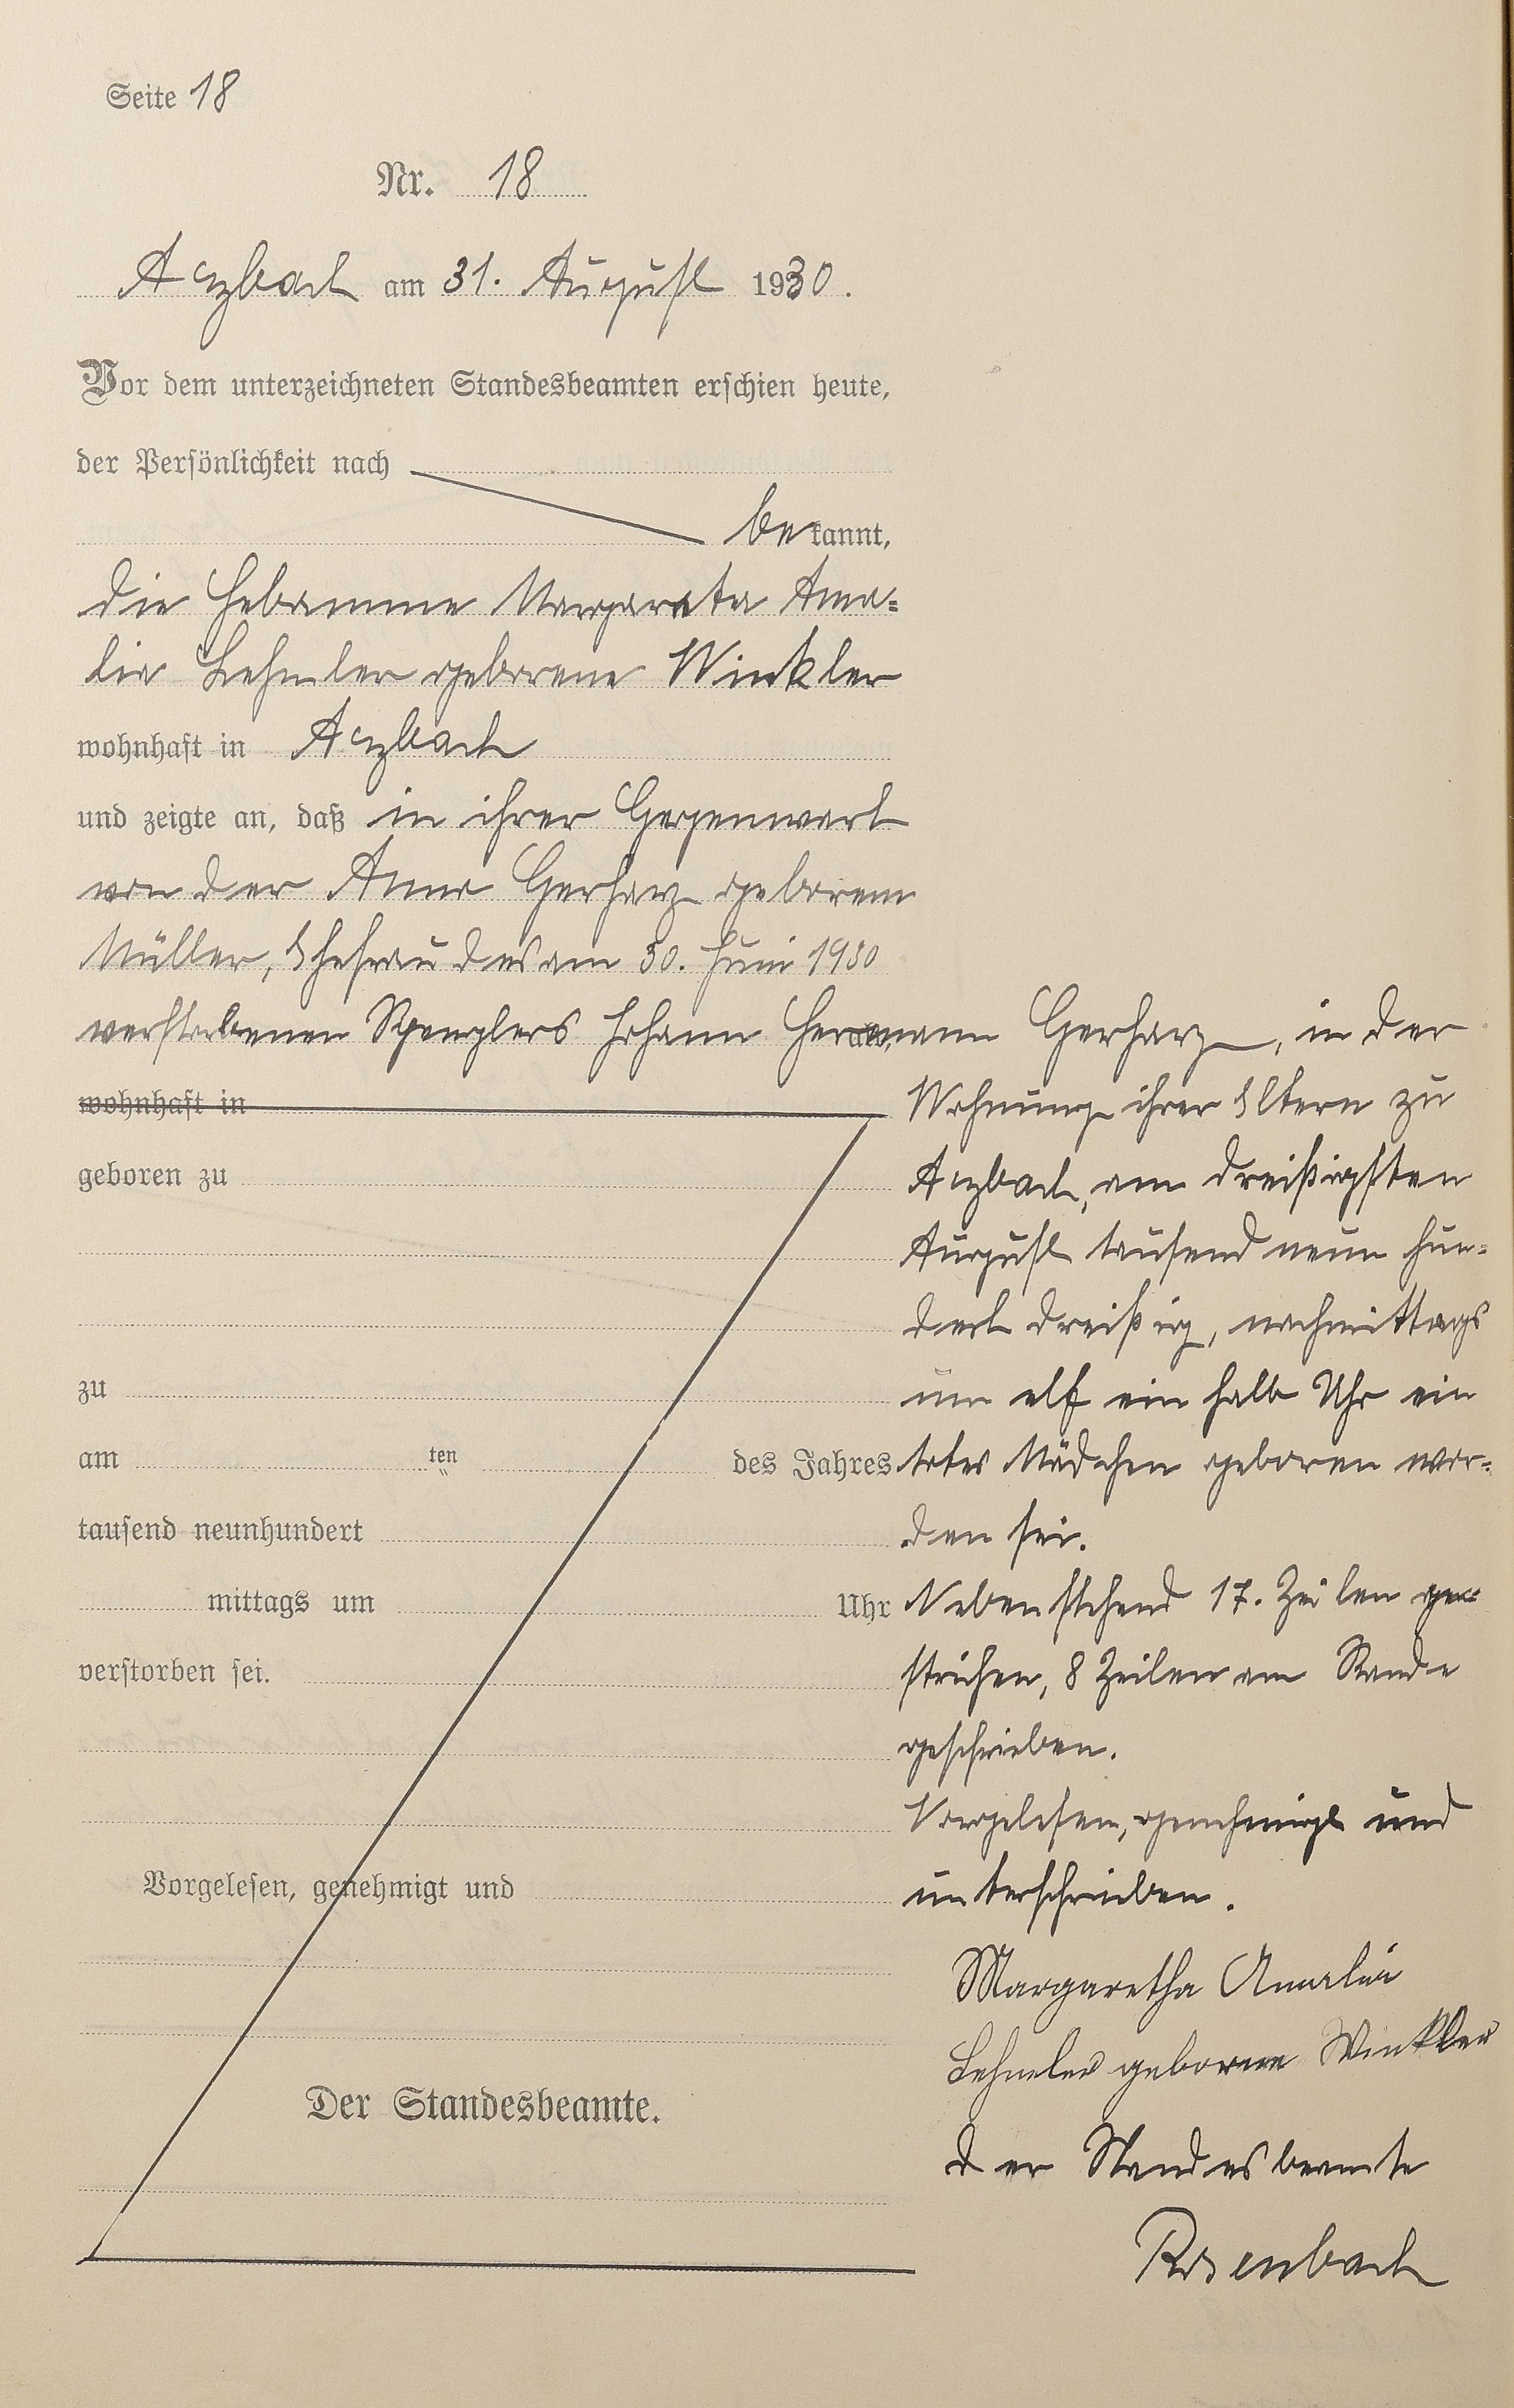 Seite 18
Nr. 18
Arzbach am 31. August 1930.
Vor dem unterzeichneten Standesbeamten erschien heute,
der Persönlichkeit nach
bekannt,
die Hebamme Margareta Ama=
lie Lehmler geborene Winkler
wohnhaft in Arzbach
und zeigte an, daß in ihrer Gegenwart
von der Anna Gerharz geborene
Müller, Ehefrau des am 30. Juni 1930
verstorbenen Spenglers Johann Hermann Gerharz, in der
wohnhaft in
Wohnung ihrer Eltern zu
geboren zu
Arzbach, am dreißigsten
August tausend neun hun=
dert dreißig, nachmittags
zu
um elf ein halb Uhr ein
am ten des Jahres
totes Mädchen geboren wor=
tausend neunhundert
den sei.
mittags um Uhr
Nebenstehend 17. Zeilen ge=
verstorben sei.
strichen, 8 Zeilen am Rande
geschrieben.
Vorgelesen, genehmigt und
Vorgelesen, genehmigt und
unterschrieben.
Margaretha Amalie
Lehmler geborene Winkler
Der Standesbeamte.
Der Standesbeamte
Rosenbach